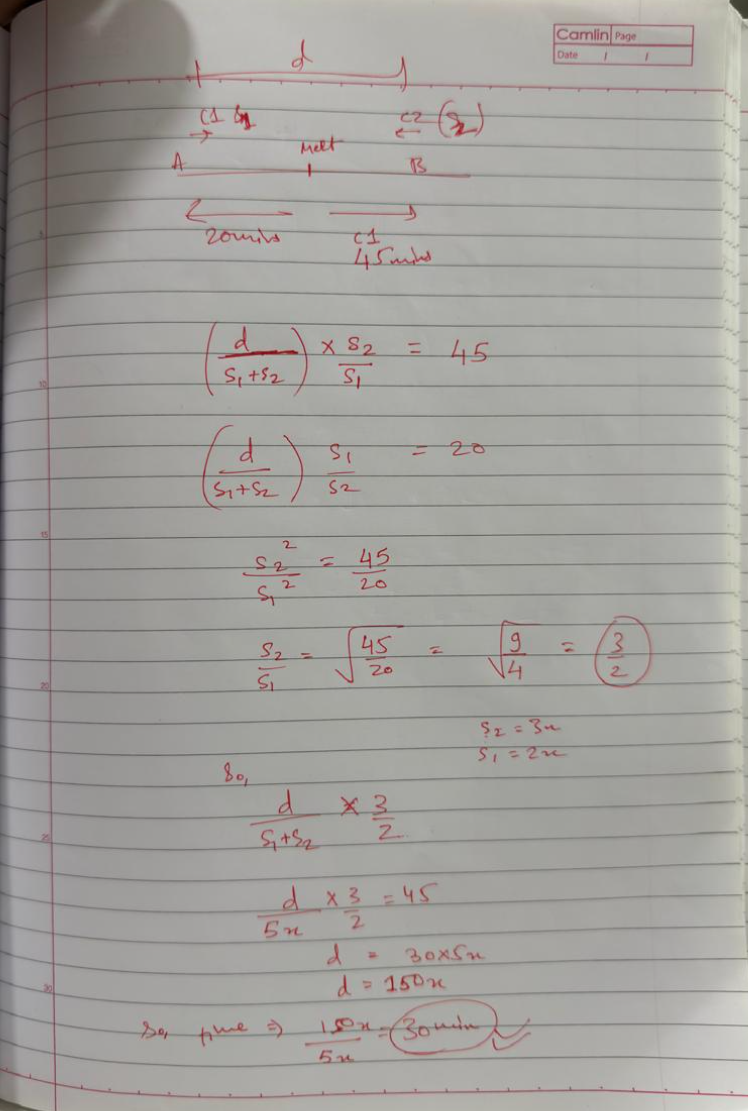 Camlin Page
Date / /
d
C1 S1 C2 (S2)
Meet
A B
20mins C1
45mins
(d/(S1+S2)) × S2/S1 = 45
(d/(S1+S2)) S1/S2 = 20
S2²/S1² = 45/20
S2/S1 = √(45/20) = √(9/4) = 3/2
S2 = 3x
S1 = 2x
So,
d/(S1+S2) × 3/2
d/5x × 3/2 = 45
d = 30×5x
d = 150x
So, time ⇒ 150x/5x = 30min